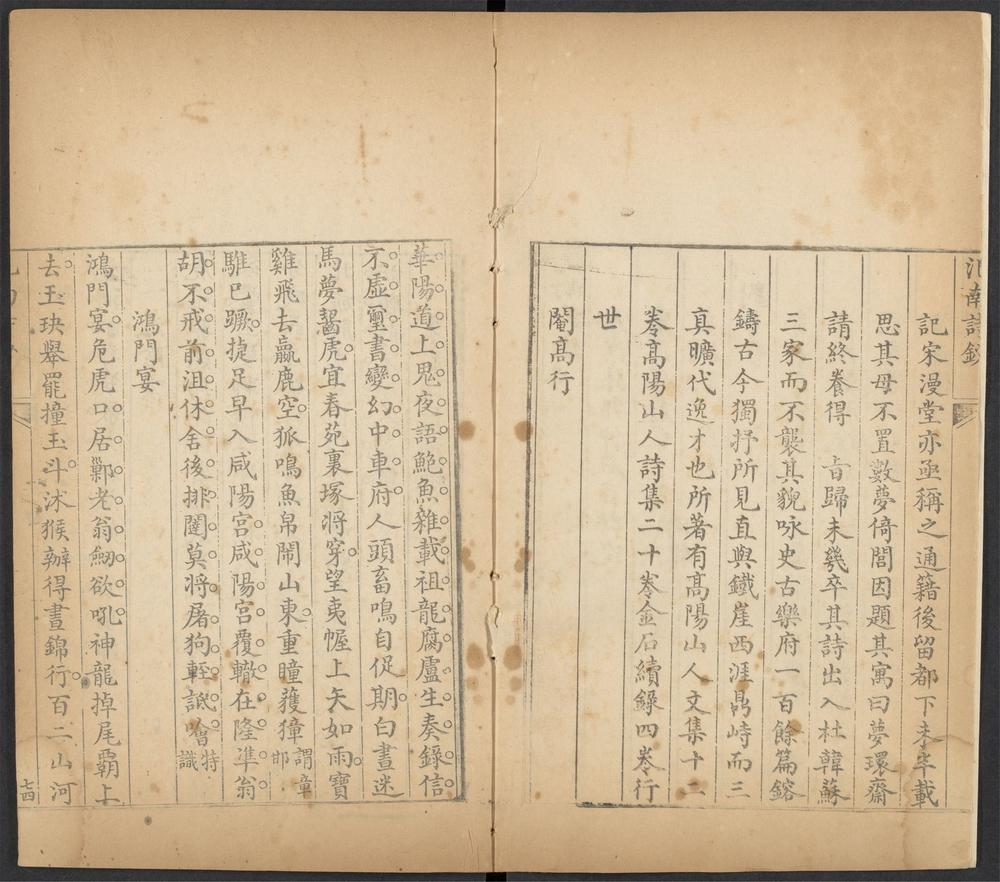 江南詩鈔
記宋漫堂亦亟稱之通籍後留都下未半載
思其母不置數夢倚閭因題其寓曰夢環齋
請終養得 旨歸未幾卒其詩出入杜韓蘇
三家而不襲其貌咏史古樂府一百餘篇鎔
鑄古今獨抒所見直與鐵崖西涯鼎峙而三
真曠代逸才也所著有高陽山人文集十二
卷高陽山人詩集二十卷金石續錄四卷行
世
閹高行
華陽道上鬼夜語鮑魚雜載祖龍腐盧生奏錄信
不虛璽書變幻中車府人頭畜鳴自促期白晝迷
馬夢齧虎宜春苑裏塚將穿望夷幄上矢如雨寶
雞飛去嬴鹿空狐鳴魚帛閙山東重瞳蠖獐謂章邯
騅已蹶捷足早入咸陽宮咸陽宮覆轍在隆準翁
胡不戒前沮休舍後排闥莫將屠狗輊詆噲特識
鴻門宴
鴻門宴危虎口居鄛老翁劒欲吼神龍掉尾霸上
去玉玦舉罷撞玉斗沐猴辦得晝錦行百二山河
七四